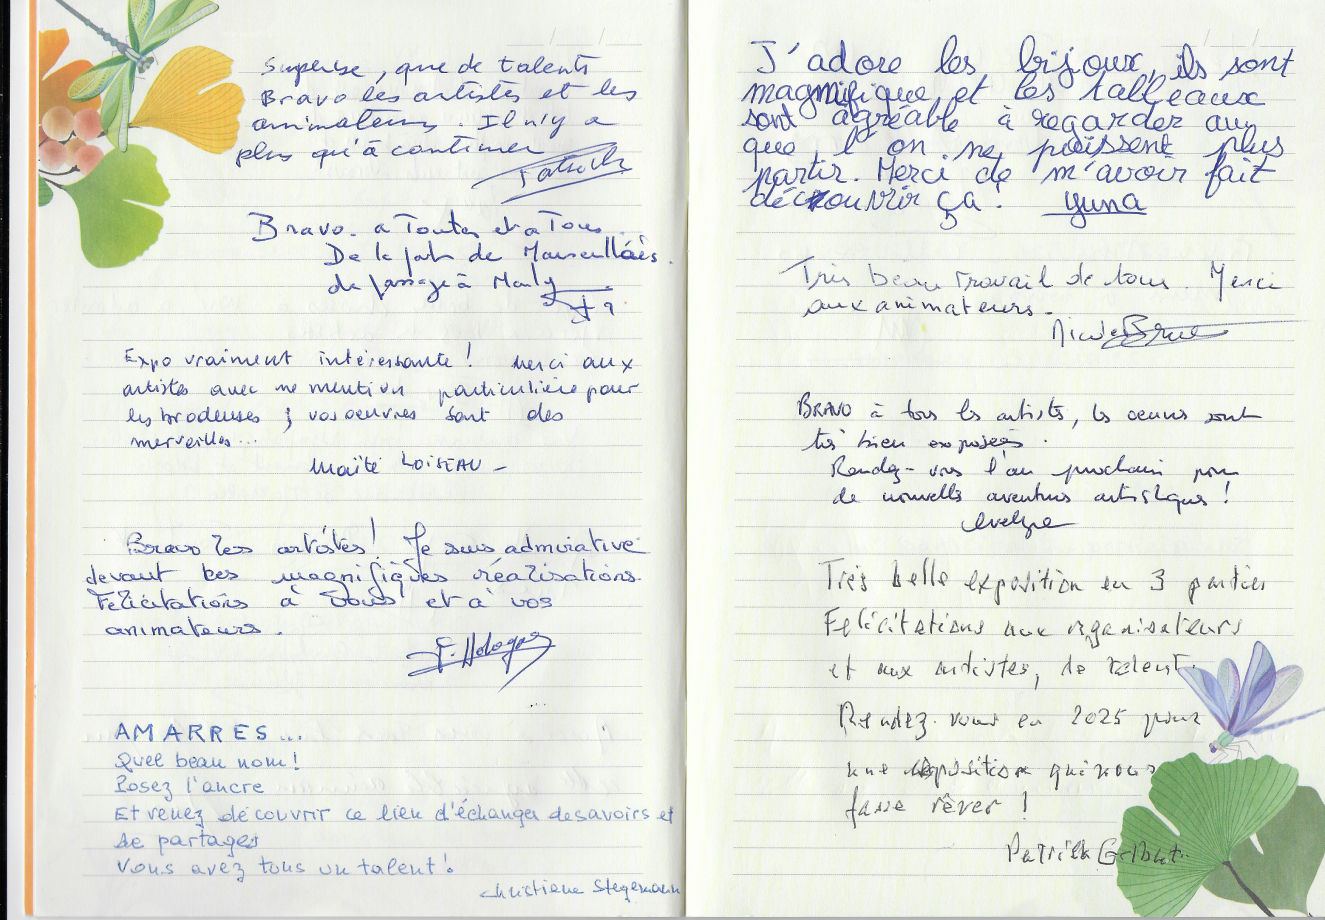 Superbe, que de talents
Bravo les artistes et les
animateurs. Il n'y a
plus qu'à continuer
Bravo. a Toutes et a Tous
De la part de Marseillais.
de passage à Marly
Expo vraiment intéressante ! merci aux
artistes avec une mention particulière pour
les brodeuses ; vos oeuvres sont des
merveilles...
Maïté LOISEAU -
Bravo les artistes ! Je suis admirative
devant ces magnifiques réalisations.
Félicitations à vous et à vos
animateurs.
AMARRES...
Quel beau nom !
Posez l'ancre
Et venez découvrir ce lien d'échanges de savoirs et
de partages
Vous avez tous un talent !
Christiane Stegemann
J'adore les bijoux, ils sont
magnifique et les tableaux
sont agréable à regarder au
que l'on ne puissent plus
partir. Merci de m'avoir fait
découvrir ça. yuna
Très beau travail de tous. Merci
aux animateurs.
Nicole
BRAVO à tous les artistes, les oeuvres sont
très bien exposées.
Rendez-vous l'an prochain pour
de nouvelles aventures artistiques !
evelyne
Très belle exposition en 3 parties
Felicitations aux organisateurs
et aux artistes, de talent.
Rendez-vous en 2025 pour
une exposition qui nous
fasse rêver !
Patrick